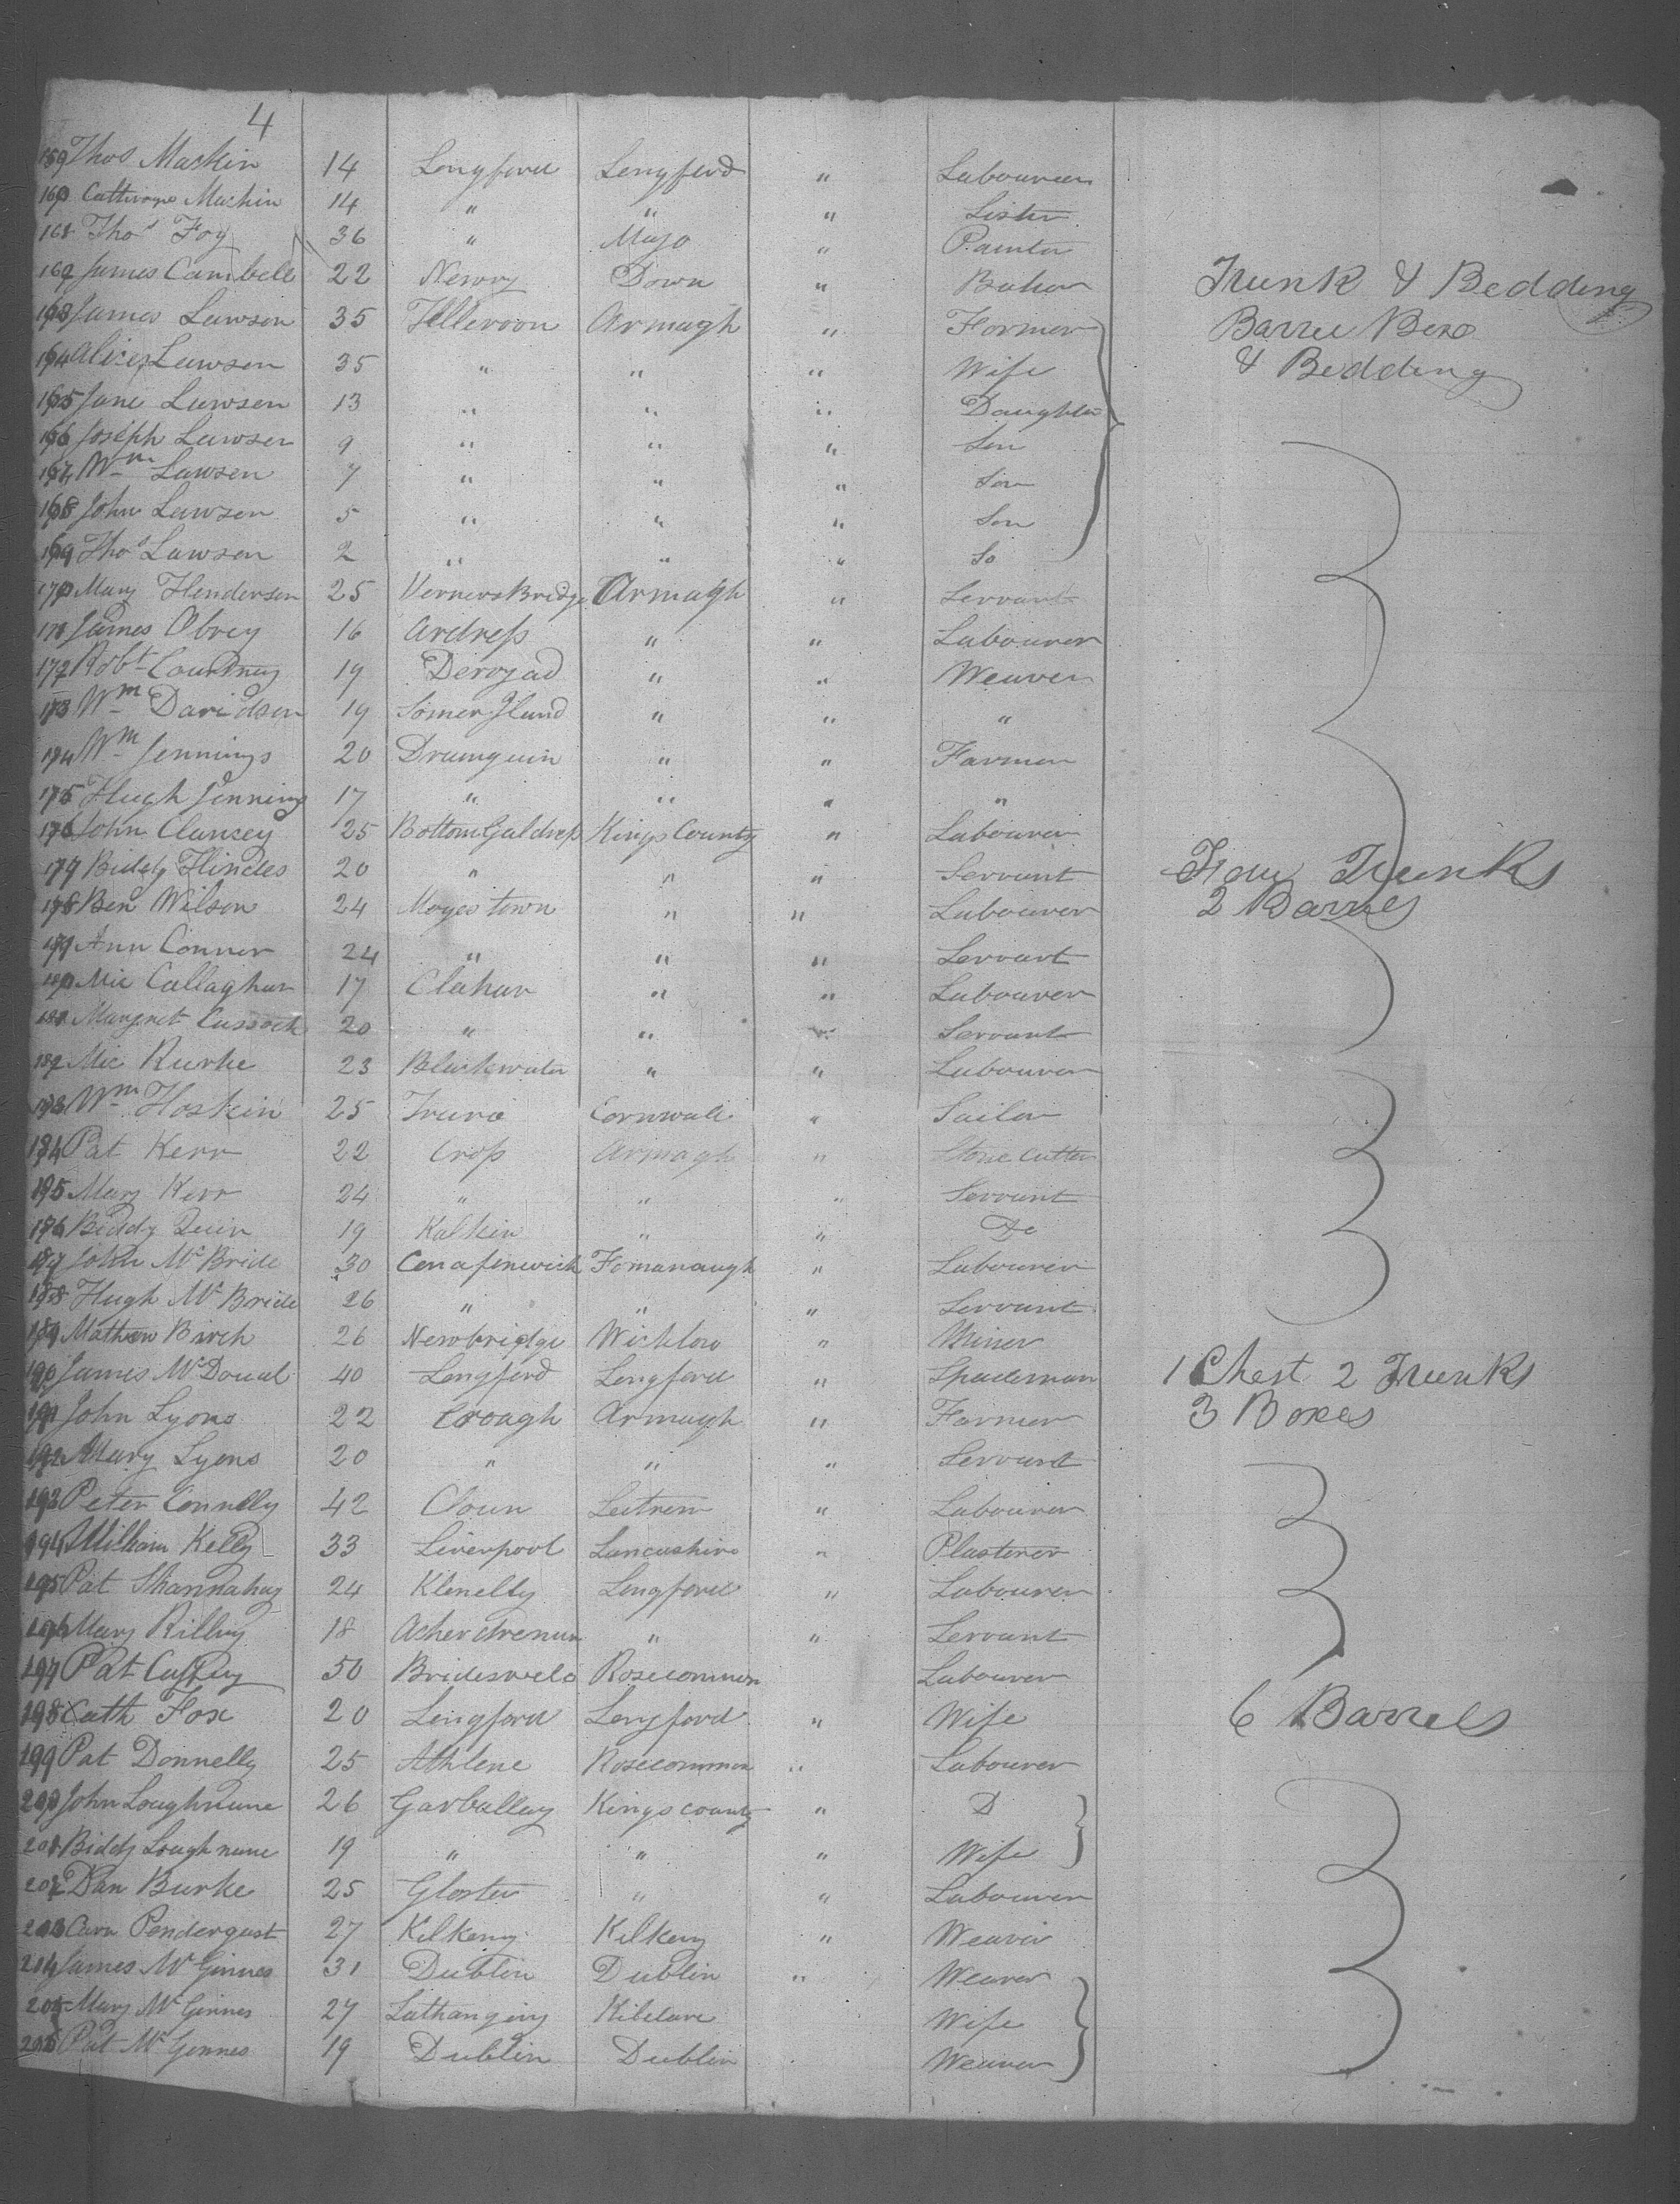 4
159 Thos Mackin 14 Longford Longford " Labourer
160 Catherine Mackin 14 " " " Sister
161 Thos Foy 36 " Mayo " Painter
162 James Cambell 22 Newry Down " Baker Trunk & Bedding
163 James Lawson 35 Armagh " Farmer Barrel Box
164 Alice Lawson 35 " " " Wife & Bedding
165 Jane Lawson 13 " " " Daughter
166 Joseph Lawson 9 " " " Son
167 Wm Lawson 7 " " " Son
168 John Lawson 5 " " " Son
169 Thos Lawson 2 " " " So
170 Mary Henderson 25 Verners Bridge Armagh " Servant
171 James Obrey 16 Ardress " " Labourer
172 Robt Courtney 19 Deroyad " " Weaver
173 Wm Davidson 19 Somer Iland " " "
174 Wm Jennings 20 Drumquin " " Farmer
175 Hugh Jennings 17 " " " "
176 John Clancey 25 Kings County " Labourer
177 Biddy Hindes 20 " " " Servant Four Trunks
178 Ben Wilson 24 Moyestown " " Labourer 2 Barrels
179 Ann Conner 24 " " " Servant
180 Mic Callaghan 17 Clahan " " Labourer
181 Margret Cussack 20 " " " Servant
182 Mic Rurke 23 Blackwater " " Labourer
183 Wm Hoskin 25 Truro Cornwall " Sailor
184 Pat Kerr 22 Cross Armagh " Stone Cutter
185 Mary Kerr 24 " " " Servant
186 Biddy Quin 19 Kalkin " " Do
187 John McBride 30 Cenafinwick Fomanaugh " Labourer
188 Hugh McBride 26 " " " Servant
189 Mathew Birch 26 Newbridge Wicklow " Miner
190 James McDoual 40 Longford Longford " Spademan 1 Chest 2 Trunks
191 John Lyons 22 Croagh Armagh " Farmer 3 Boxes
192 Mary Lyons 20 " " " Servant
193 Peter Connelly 42 Cloun Leitrem " Labourer
194 William Kelly 33 Liverpool Lancashire " Plasterer
195 Pat Shannahay 24 Klenelly Longford " Labourer
196 Mary Rilley 18 " " Servant
197 Pat Caffery 50 Brideswels Rosecommon Labourer
198 Cath Fox 20 Longford Longford " Wife 6 Barrels
199 Pat Donnelly 25 Athlene Rosecommon " Labourer
200 John Loughnane 26 Garballey Kings County " D
201 Biddy Loughnane 19 " " " Wife
202 Dan Burke 25 Gloster " " Labourer
203 Pendergast 27 Kilkeny Kilkeny " Weaver
204 James McGinnes 31 Dublin Dublin " Weaver
205 Mary McGinnes 27 Kildare Wife
206 Pat McGinnes 19 Dublin Dublin Weaver